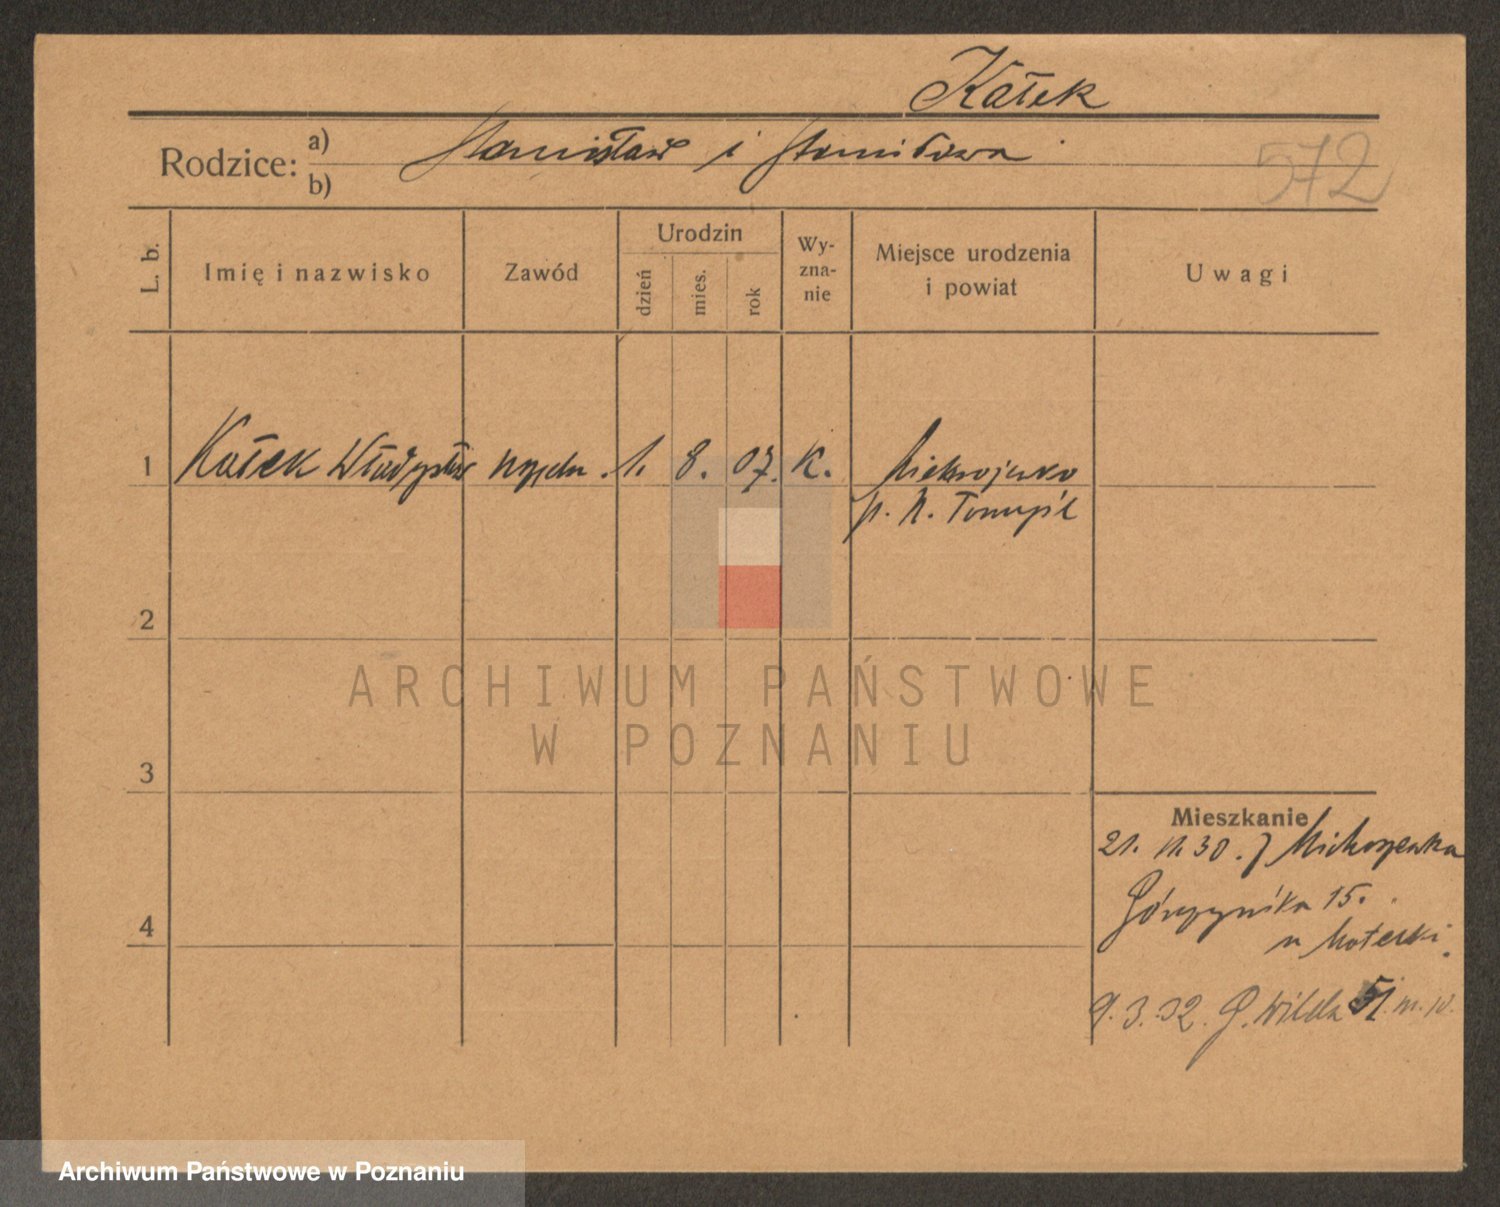 Kałek
Rodzice: a) Stanisław i Stanisława
b)
572
L. b.
Imię i nazwisko
Zawód
Urodzin
dzień
mies.
rok
Wy-
zna-
nie
Miejsce urodzenia
i powiat
Uwagi
1 Kałek Władysław 1. 8. 07. K.
p. N. Tomyśl
2
3
4
ARCHIWUM PAŃSTWOWE
W POZNANIU
Mieszkanie
21. 11. 30.
15.
u Matecki.
9. 3. 32. G. Wilda 51 m. 10.
Archiwum Państwowe w Poznaniu